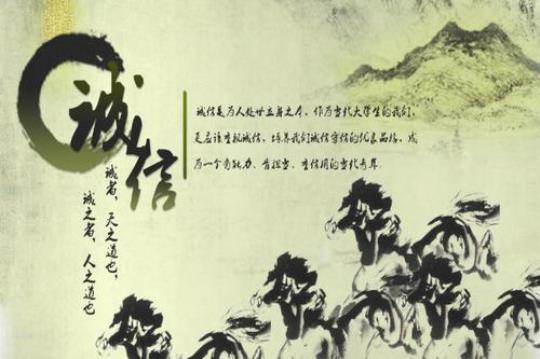 诚信
诚者，天之道也，
诚之者，人之道也
诚信是为人处世立身之本，作为当代大学生的我们，
更应该重视诚信，培养我们诚信守信的优良品格，成
为一个有能力、肯担当、重信用的当代青年